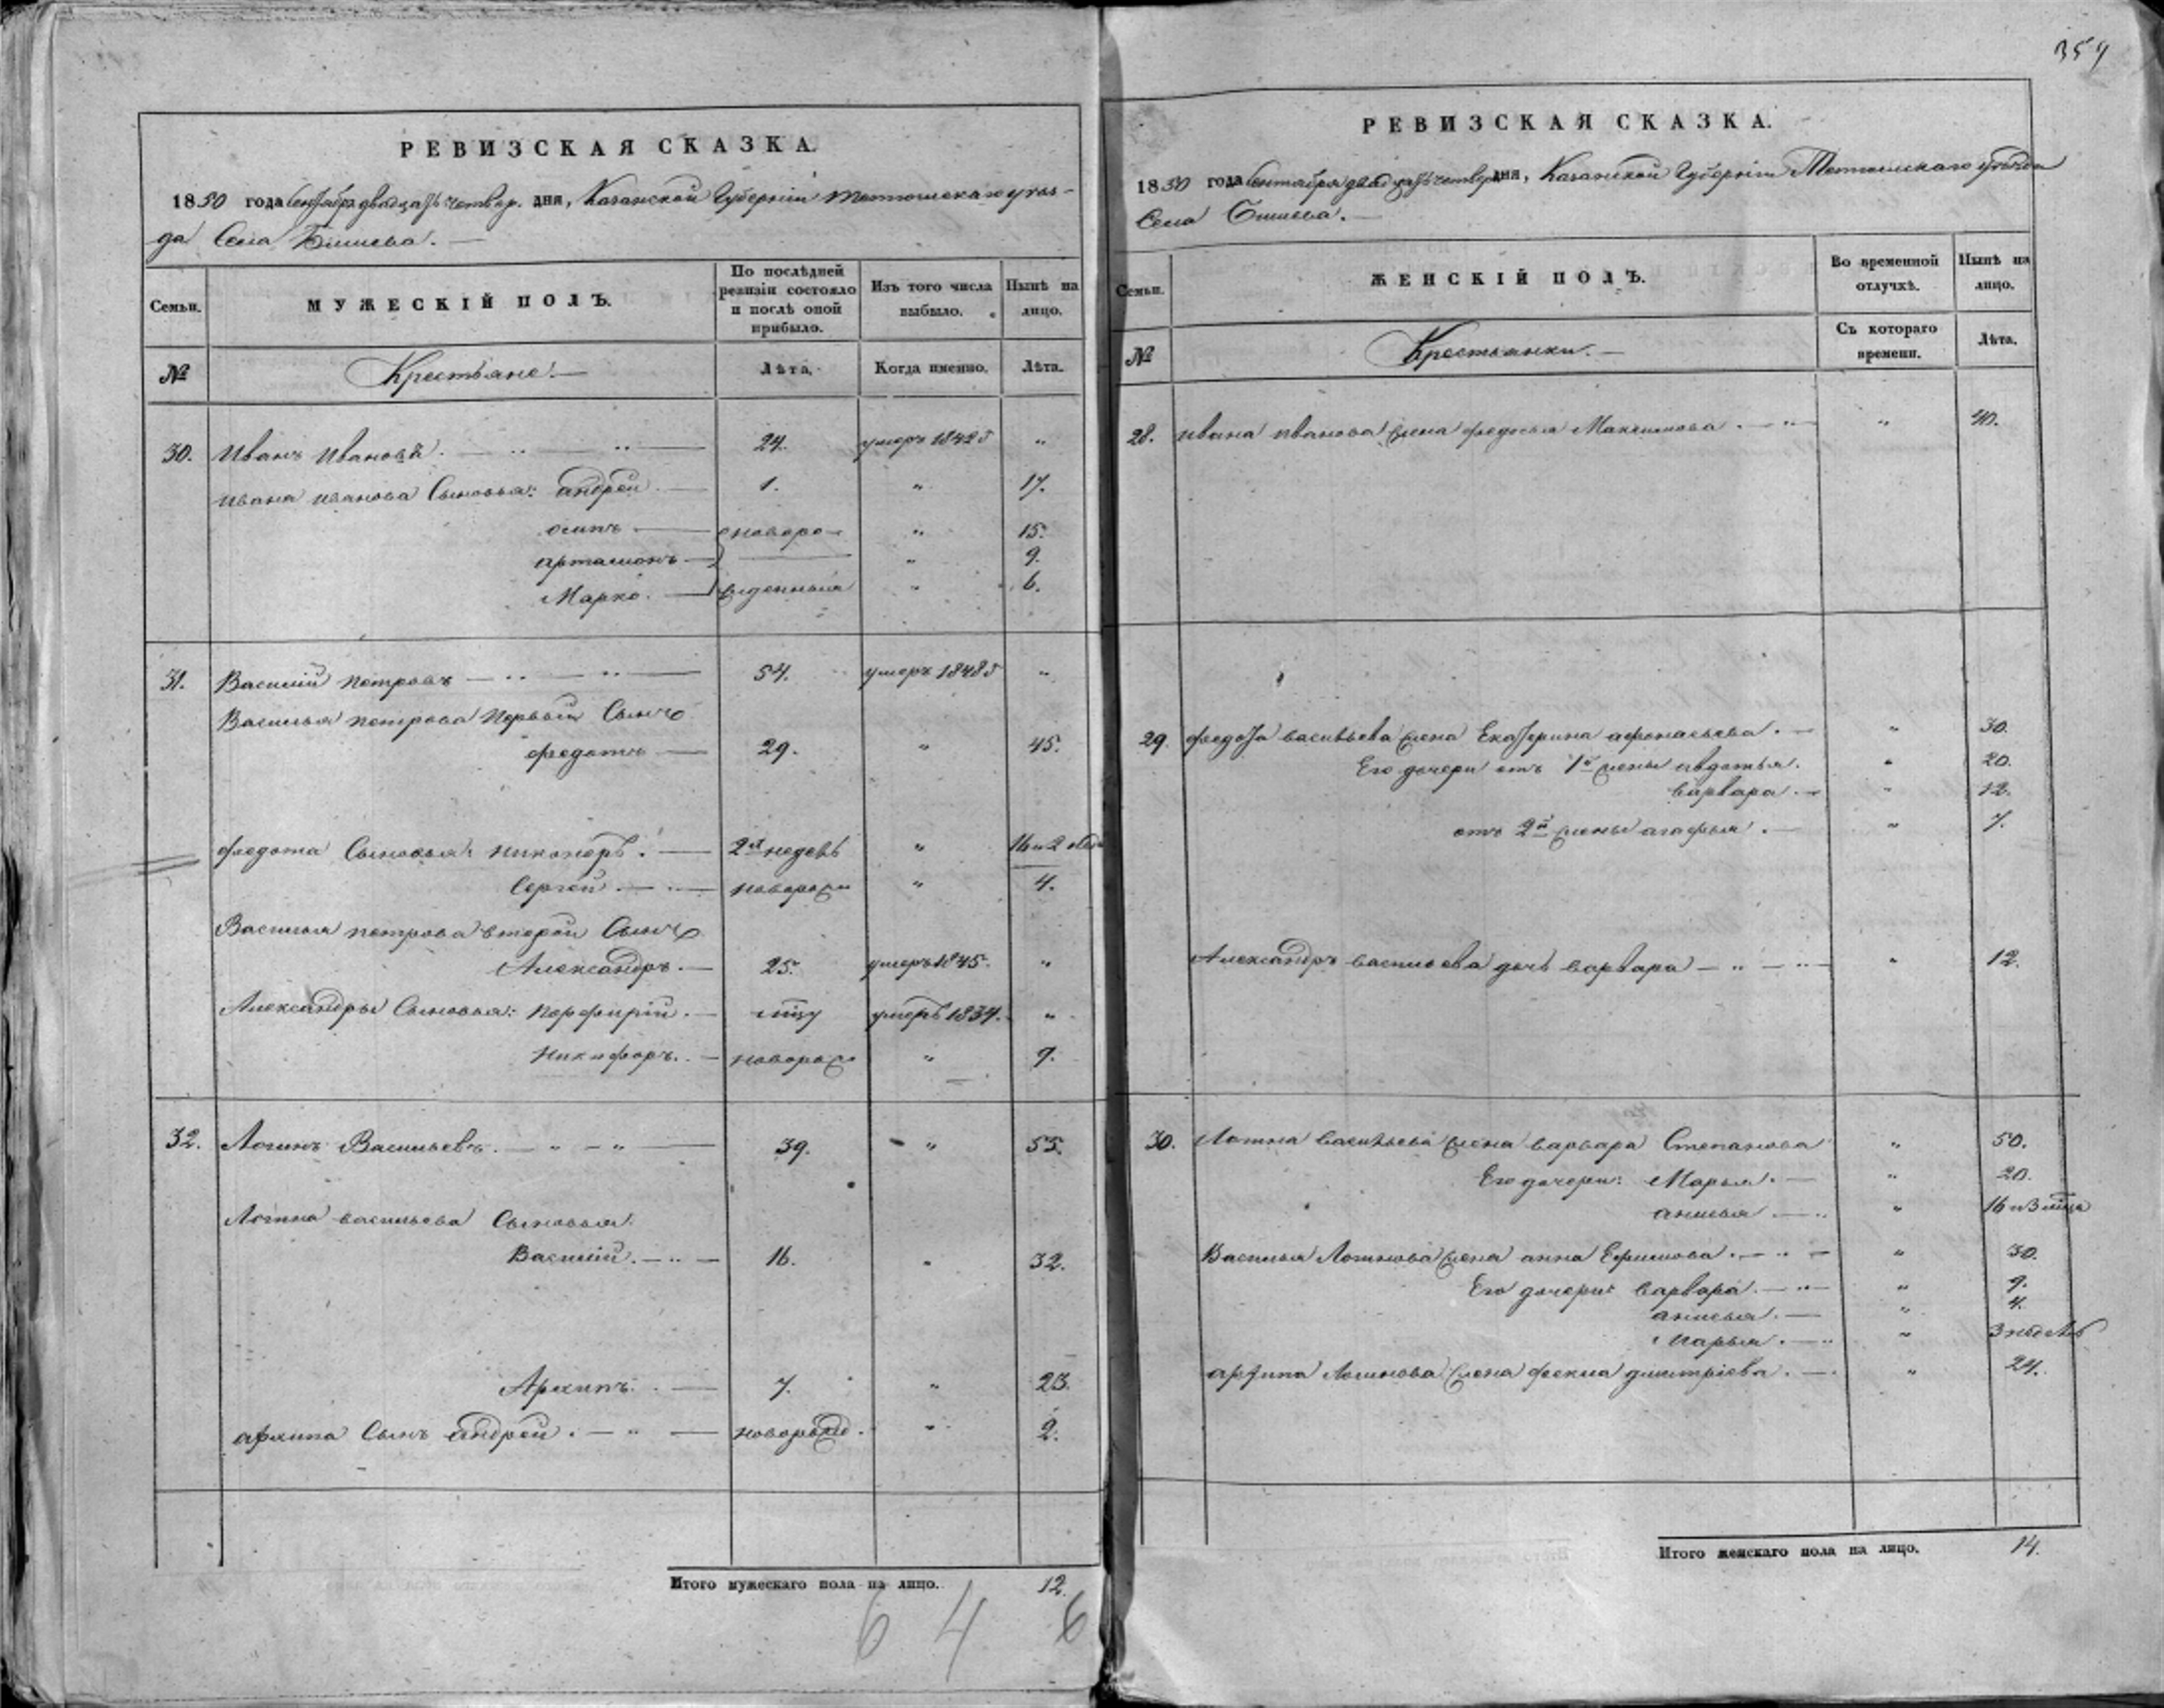 359
РЕВИЗСКАЯ СКАЗКА.
1850 года Сентября двадцать четвер. дня, Казанской Губерніи Тетюшскаго уѣз-
да Села Бишева. —
Семьи. МУЖЕСКІЙ ПОЛЪ. По послѣдней ревизіи состояло и послѣ оной прибыло. Изъ того числа выбыло. Нынѣ на лицо.
№ Крестьяне. — Лѣта. Когда именно. Лѣта.
30. Иванъ Ивановъ. — 24. умеръ 1842 „
Ивана Иванова Сыновья: андрей — 1. „ 17.
осипъ — новоро- „ 15.
артамонъ — „ 9.
Марко. — жденныя „ 6.
31. Василій Петровъ — 54. умеръ 1848 „
Василья Петрова Первый Сынъ
федотъ — 29. „ 45.
федота Сыновья: никоноръ. — 2х недель „ 16 и 2 нед
Сергей. — новорож „ 4.
Василья Петрова второй Сынъ
Александръ. — 25. умеръ 1845. „
Александры Сыновья: порфирій. — мцу умеръ 1834. „
никифоръ. — новорож „ 9.
32. Логинъ Васильевъ. — 39. „ 55.
Логина васильева Сыновья:
Василій. — 16. „ 32.
Архипъ. — 7. „ 23.
архипа Сынъ андрей. — новорожд. „ 2.
Итого мужескаго пола на лицо. 12.
6 4 6
РЕВИЗСКАЯ СКАЗКА.
1850 года Сентября двадцать четвер дня, Казанской Губерніи Тетюшскаго уѣзда
Села Бишева. —
Семьи. ЖЕНСКІЙ ПОЛЪ. Во временной отлучкѣ. Нынѣ на лицо.
№ Крестьянки. — Съ котораго времени. Лѣта.
28. Ивана Иванова жена федосья Максимова. — „ 40.
29. федота васильева жена Екатерина афонасьева. — „ 30.
Его дочери отъ 1й жены авдотья. „ 20.
варвара. — „ 12.
отъ 2й жены агафья. — „ 7.
Александръ васильева дочь варвара — „ 12.
30. Логина васильева жена варвара Степанова „ 50.
Его дочери: Марья. — „ 20.
анисья. — „ 16 и 3 мца
Василья Логинова жена анна Ефимова. — „ 30.
Его дочери: варвара. — „ 9.
анисья. — „ 4.
Марья. — „ 3 недель
архипа Логинова жена фекла дмитріева. — „ 24.
Итого женскаго пола на лицо. 14.